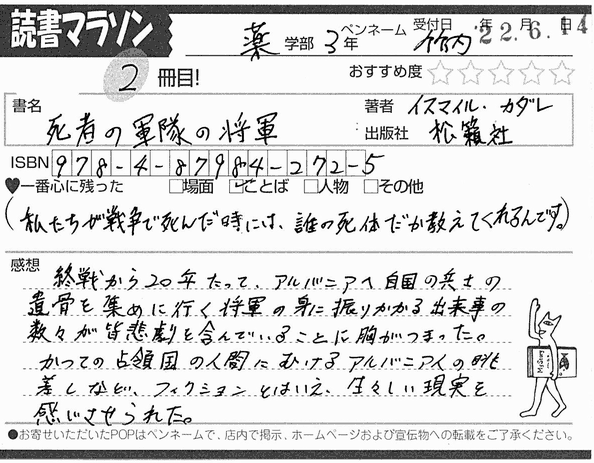 読書マラソン
薬 学部 3年
ペンネーム 竹内
受付日 年 月 日
'22.6.14
2 冊目!
おすすめ度 ☆☆☆☆☆
書名 死者の軍隊の将軍
著者 イスマイル・カダレ
出版社 松籟社
ISBN 978-4-87984-272-5
♥一番心に残った □場面 ☑ことば □人物 □その他
(私たちが戦争で死んだ時には、誰の死体だか教えてくれるんです。)
感想
終戦から20年たって、アルバニアへ自国の兵士の
遺骨を集めに行く将軍の身に振りかかる出来事の
数々が皆悲劇を含んでいることに胸がつまった。
かつての占領国の人間にむけるアルバニア人の眺
差しなど、フィクションとはいえ、生々しい現実を
感じさせられた。
●お寄せいただいたPOPはペンネームで、店内で掲示、ホームページおよび宣伝物への転載をご了承ください。